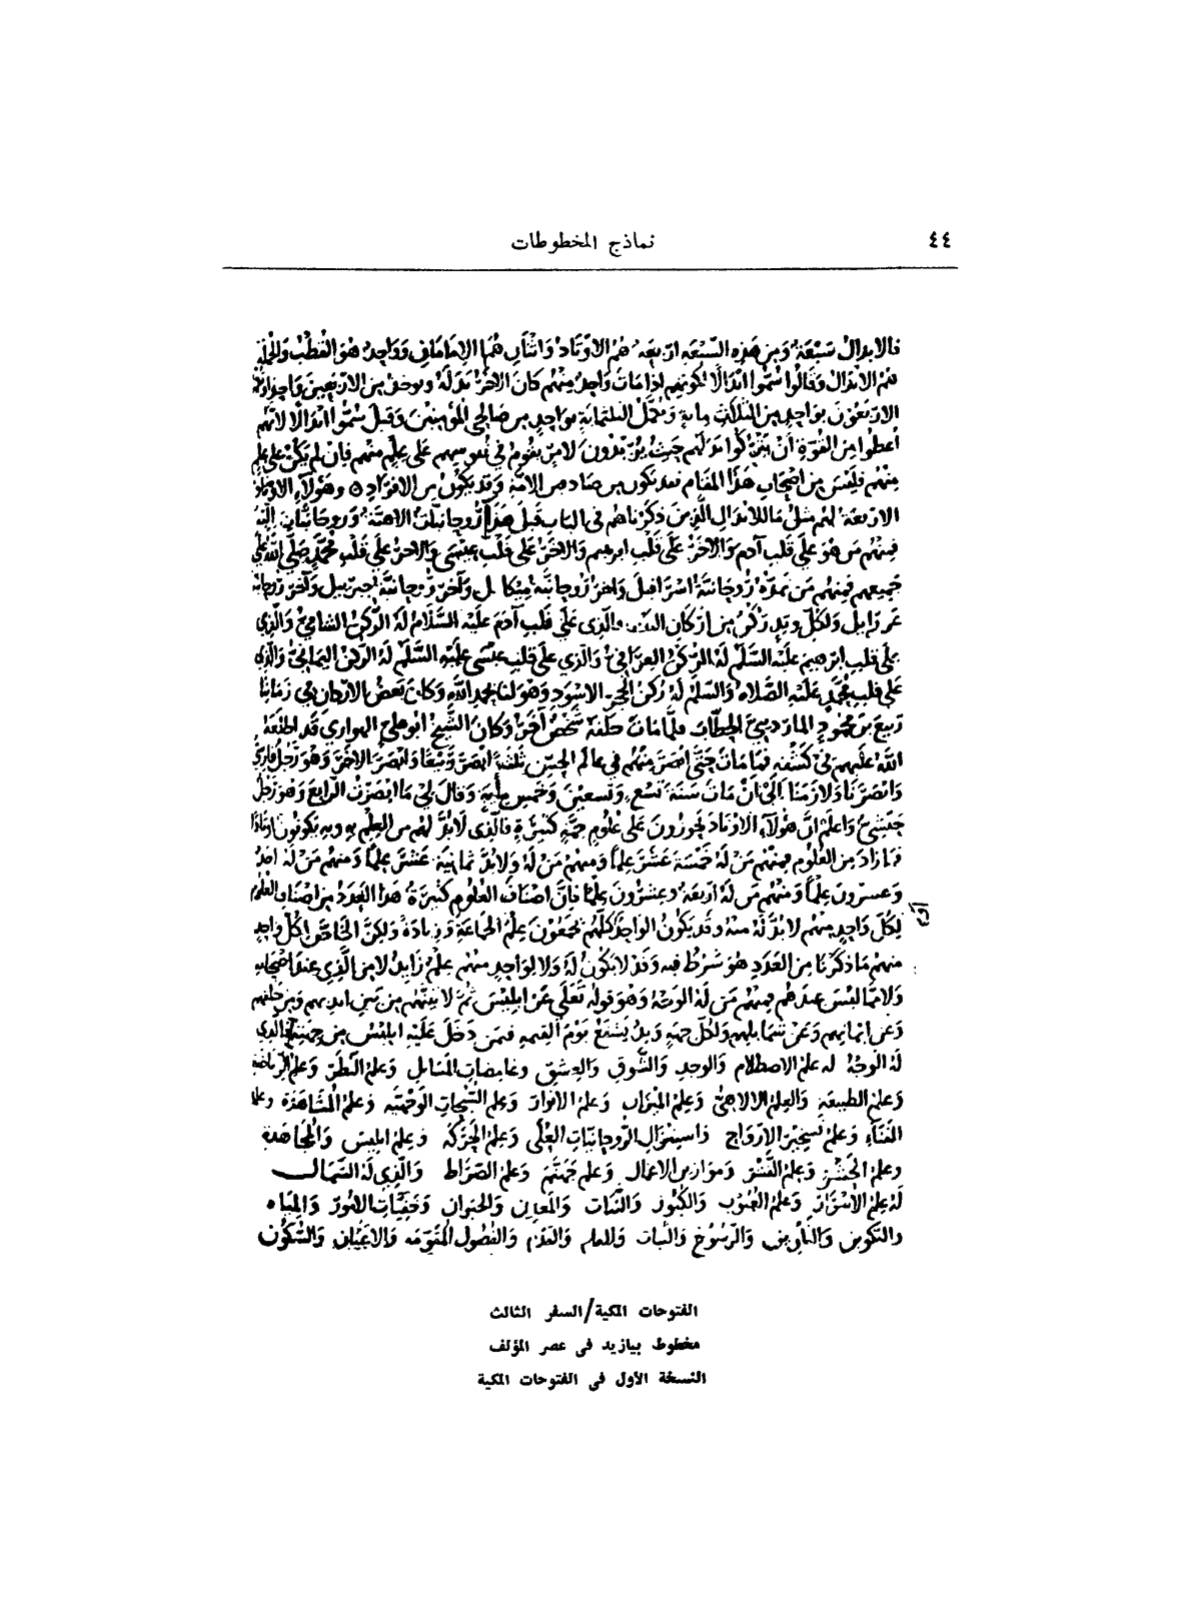 ٤٤
نماذج المخطوطات
فالابدال سبعة ومن هذه السبعة اربعة هم الاوتاد واثنان هما الامامان وواحد هو القطب والجملة
هم الابدال وقالوا سموا ابدالا لكونهم اذا مات واحد منهم كان الاخر بدله ويوخذ من الاربعين واحد
الاربعون بواحد من الثلاث ماية وتكمل الثلثماية بواحد من صالحي المؤمنين وقيل سموا ابدالا لانهم
اعطوا من القوة ان يتركوا بدلهم حيث يريدون لامر يقوم في نفوسهم على علم منهم فان لم يكن على علم
منهم فليس من اصحاب هذا المقام فقد يكون من صلحاء الامة وقد يكون من الافراد وهولاء الاوتاد
الاربعة لهم مثل ما للابدال الذين ذكرناهم في الباب قبل هذا روحانيات الاهية وروحانيات الية
فمنهم من هو على قلب آدم والاخر على قلب ابرهيم والاخر على قلب عيسى والاخر على قلب محمد صلى الله على
جميعهم فمنهم من تمده روحانية اسرافيل واخر روحانية ميكايل وآخر روحانية جبرييل وآخر روحانية
عزرايل ولكل وتد ركن من اركان البيت فالذي على قلب آدم عليه السلام له الركن الشامي والذي
على قلب ابرهيم عليه السلم له الركن العراقي والذي على قلب عيسى عليه السلم له الركن اليماني والذي
على قلب محمد عليه الصلاه والسلم له ركن الحجر الاسود وهو لنا بحمد الله وكان بعض الاركان في زماننا
ربيع بن محمود المارديني الحطاب فلما مات خلفه شخص آخر وكان الشيخ ابو علي الهواري قد اطلعه
الله عليهم في كشفه فما مات حتى ابصر منهم في عالم الحس ثلثة ابصر ربيعا وابصر الاخر وهو رجل فارسي
وابصرنا ولازمنا الى ان مات سنة تسع وتسعين وخمس ماية وقال لي ما ابصرت الرابع وهو رجل
حبشي واعلم ان هولاء الاوتاد يحوزون على علوم جمة كثيرة فالذي لابد لهم من العلم به وبه يكونون اوتادا
فما زاد من العلوم فمنهم من له خمسة عشر علما ومنهم من له ولابد ثمانية عشر علما ومنهم من له احد
وعشرون علما ومنهم من له اربعة وعشرون علما فان اصناف العلوم كثيرة هذا العدد من اصناف العلوم
لكل واحد منهم لابد له منه وقد يكون الواحد كلهم يجمعون علم الجماعة وزيادة ولكن الخاص لكل واحد
منهم ما ذكرنا من العدد هو شرط فيه وقد لا يكون له ولا لواحد منهم علم زايد لا من الذي عند اصحابه
ولا مما ليس عندهم فمنهم من له الوجه وهو قوله تعلى عن ابليس ثم لاتينهم من بين ايديهم ومن خلفهم
وعن ايمانهم وعن شمايلهم ولكل جهة وتد يشفع يوم القيمه فمن دخل عليه ابليس من جهته فالذي
له الوجه له علم الاصطلام والوجد والشوق والعشق وغامضات المسايل وعلم النظر وعلم الرياضة
وعلم الطبيعة والعلم الالاهي وعلم الميزان وعلم الانوار وعلم السبحات الوجهيه وعلم المشاهدة وعلم
الفناء وعلم تسخير الارواح واستنزال الروحانيات العلى وعلم الحركة وعلم ابليس والمجاهدة
وعلم الحشر وعلم النشر وموازين الاعمال وعلم جهنم وعلم الصراط والذي له الشمال
له علم الاسرار وعلم الغيوب والكنوز والنبات والمعادن والحيوان وخفيات الامور والمياه
والتكوين والتلوين والرسوخ والثبات والمقام والقدم والفصول المقومه والاعيان والسكون
الفتوحات المكية/السفر الثالث
مخطوط بيازيد فى عصر المؤلف
النسخة الأول فى الفتوحات المكية